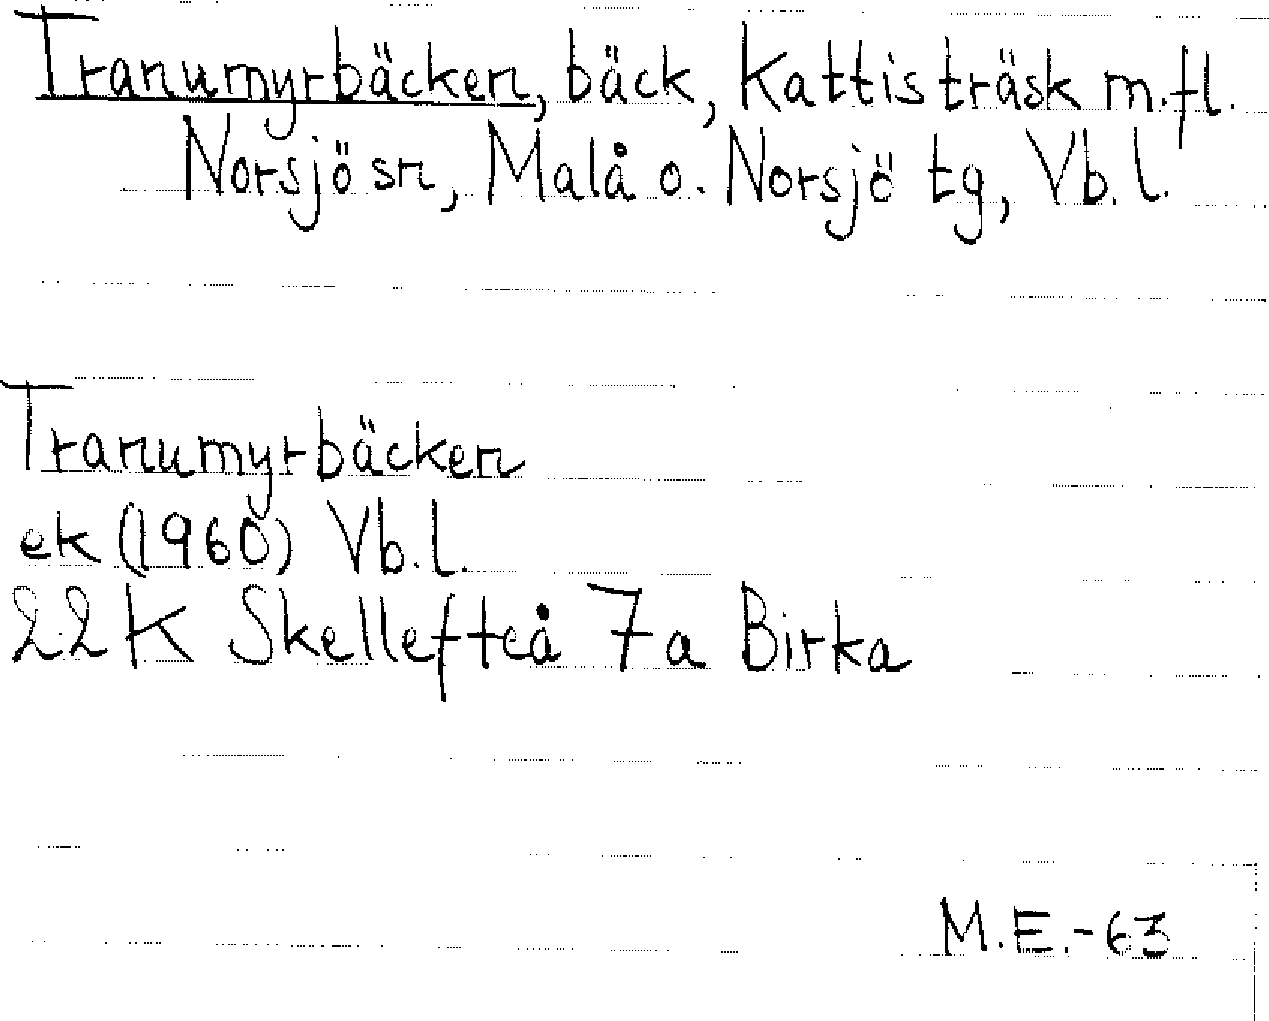 Tranumyrbäcken, bäck, Kattisträsk m.fl.
Norsjö sn, Malå o. Norsjö tg, Vb.l.
Tranumyrbäcken
ek (1960) Vb.l.
22K Skellefteå 7a Birka
M.E.-63